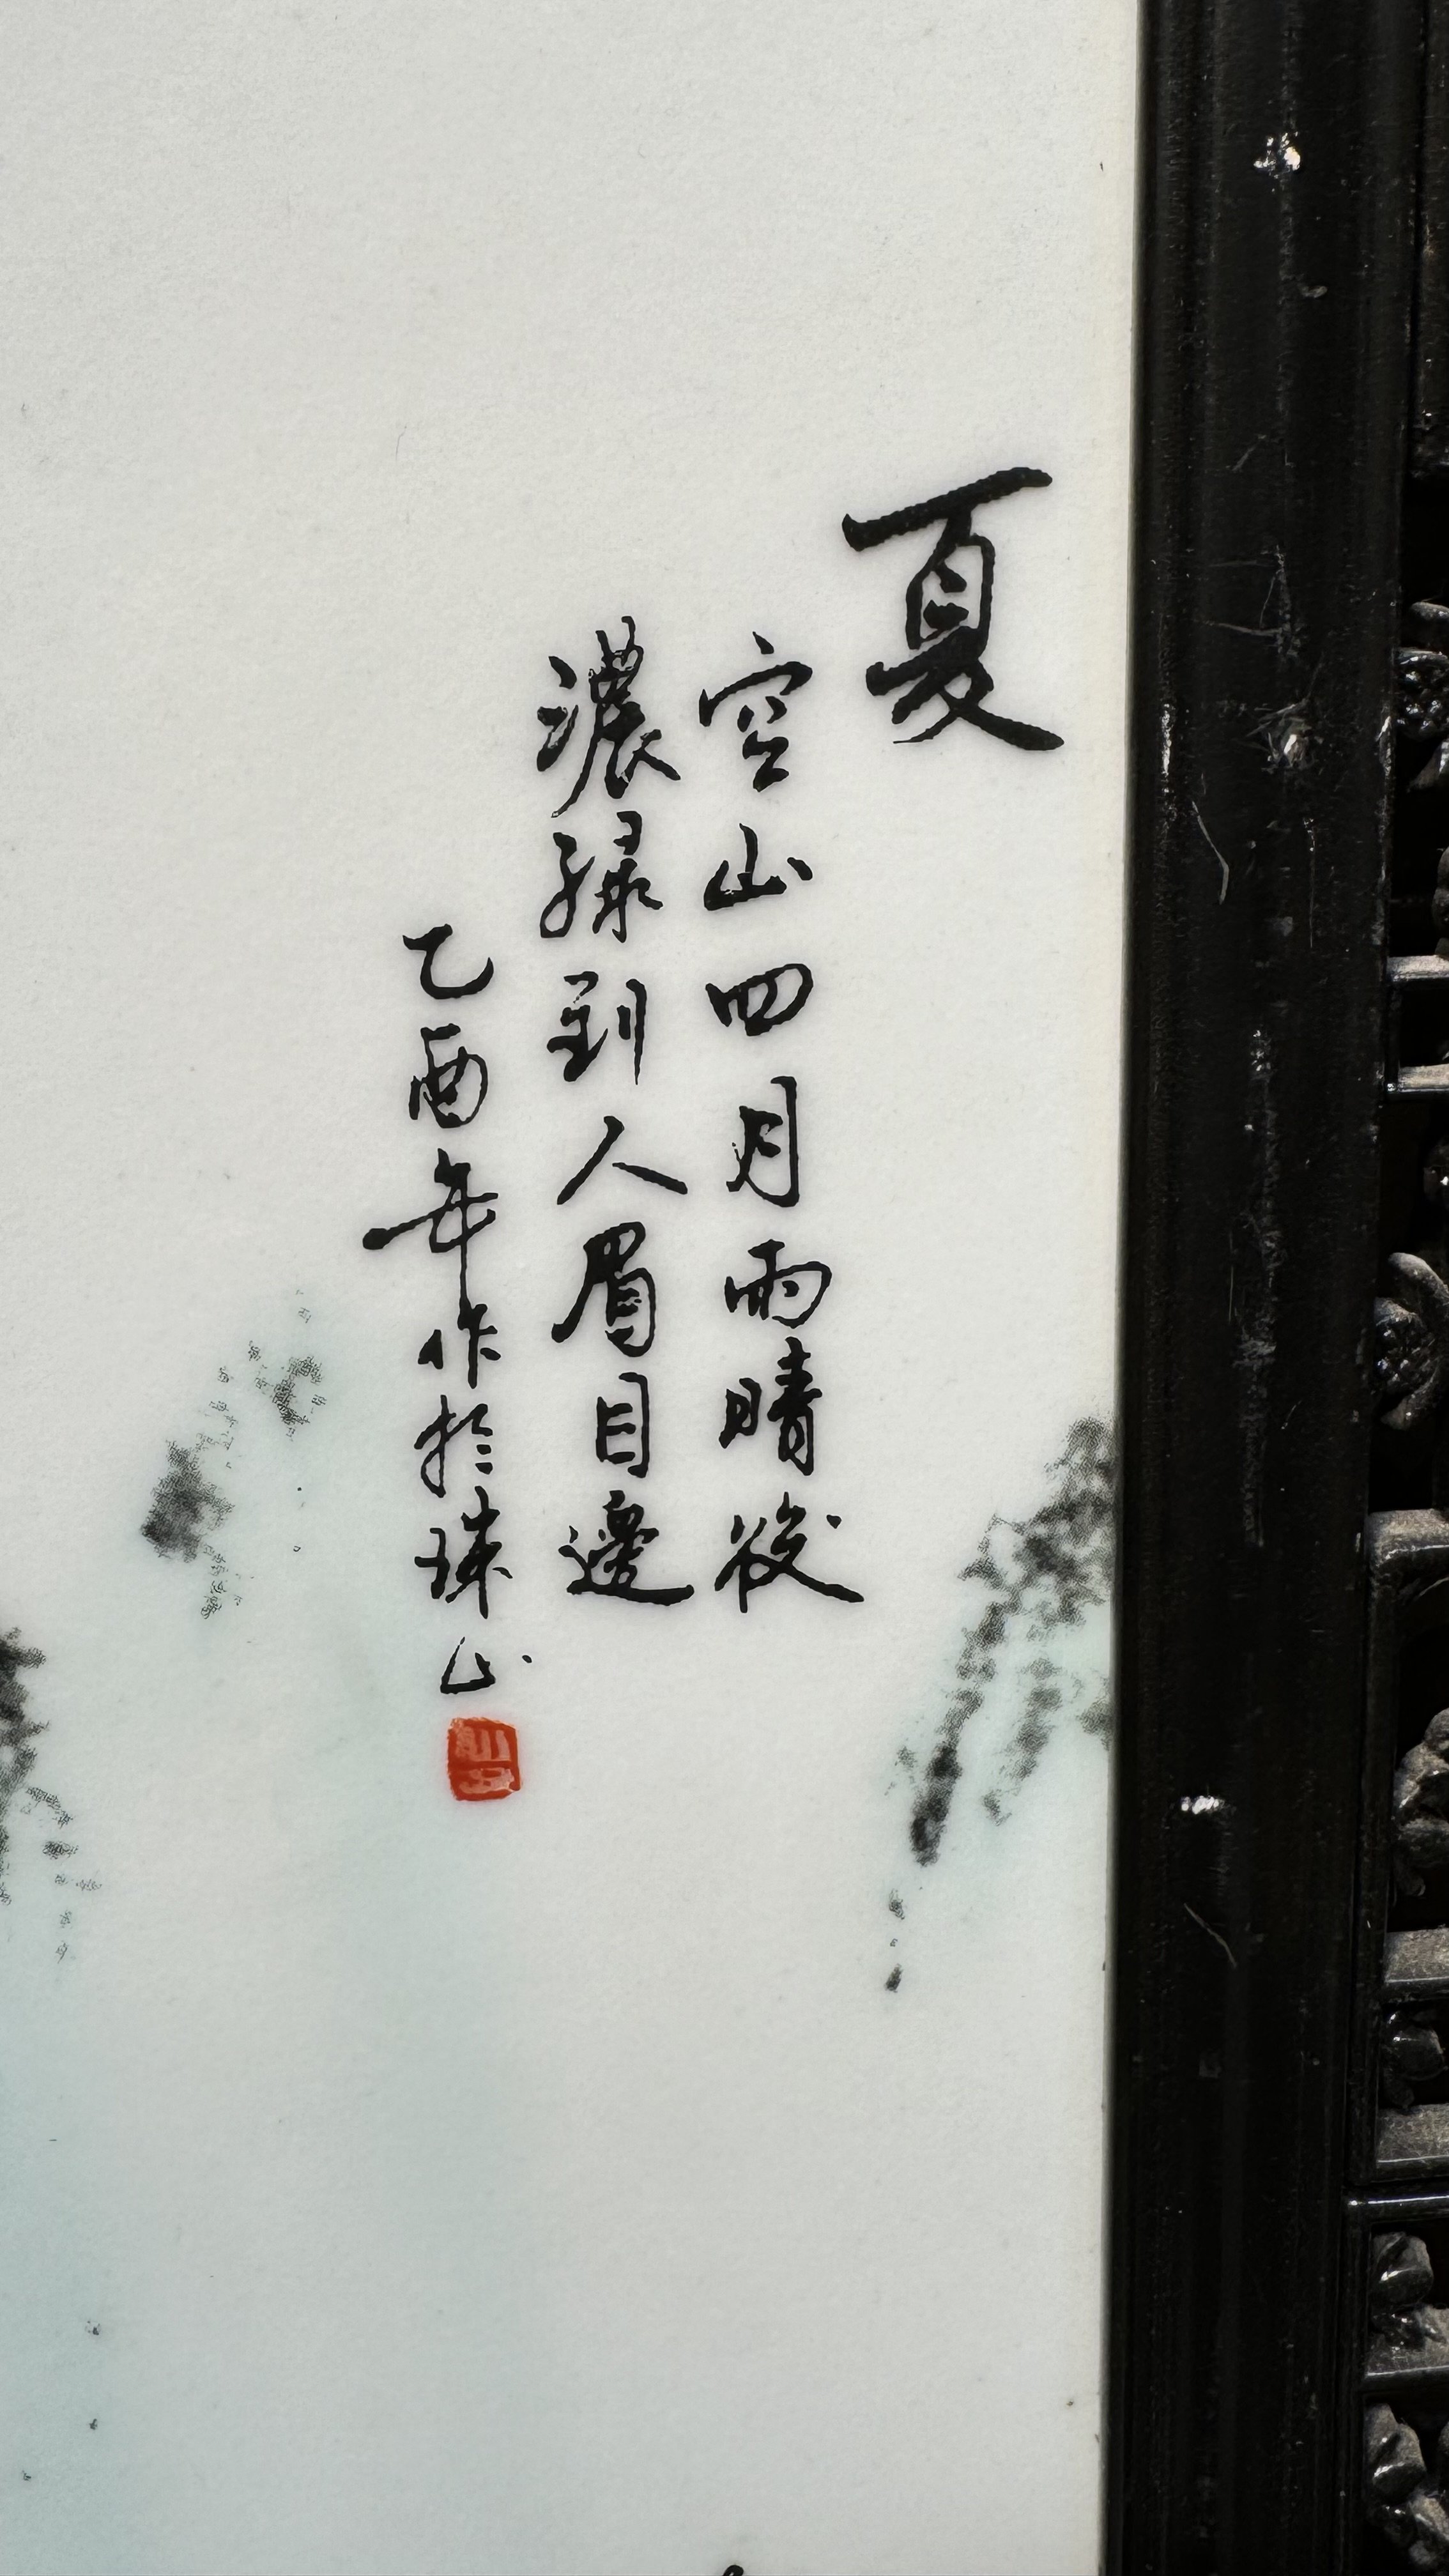 夏
空山四月雨晴後
濃綠到人眉目邊
乙酉年作於珠山